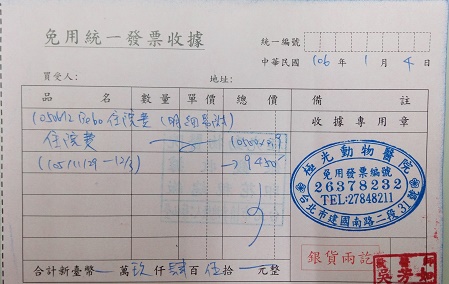 免用統一發票收據
統一編號
中華民國 106 年 1 月 4 日
買受人: 地址:
品名 數量 單價 總價 備註
1050612 Bobo住院費 (明細
收據專用章
住院費
(105/11/29 - 12/3) → 9450
極光動物醫院
免用發票編號
26378232
TEL:27848211
台北市建國南路二段31號
銀貨兩訖
合計新臺幣 萬玖仟肆百伍拾 元整
吳芳如